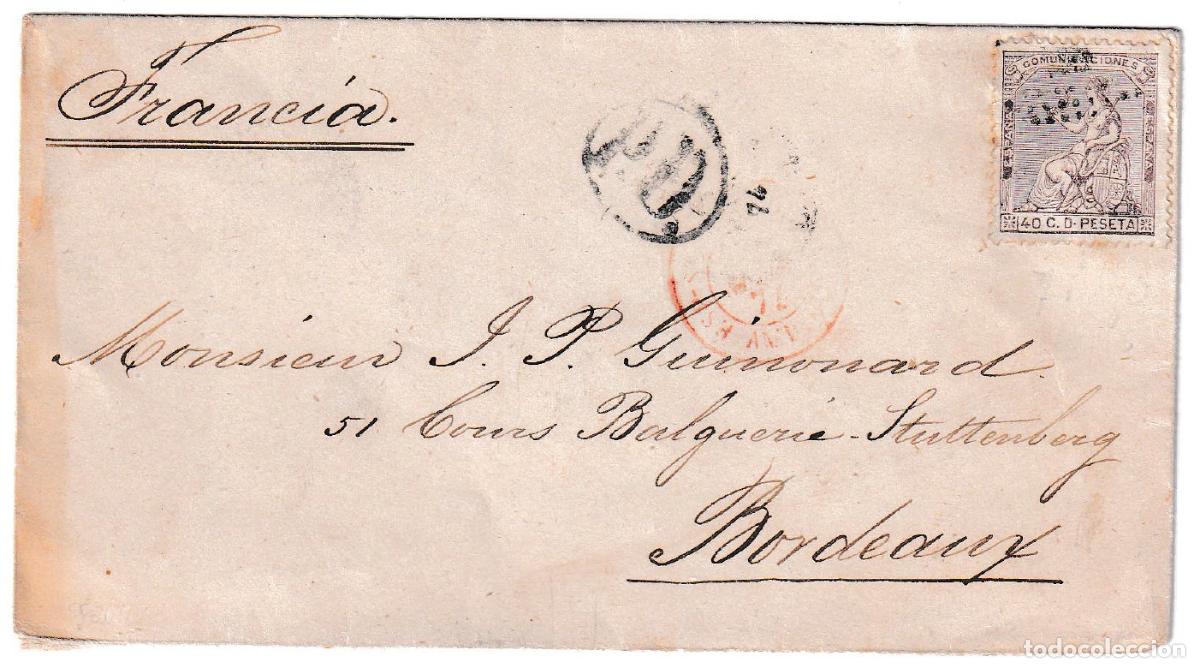 Francia.
PD
COMUNICACIONES
ESPAÑA
40 C. D. PESETA
74
74
Monsieur J. P. Guimonard.
51 Cours Balguerie-Stuttenberg
Bordeaux
todocoleccion